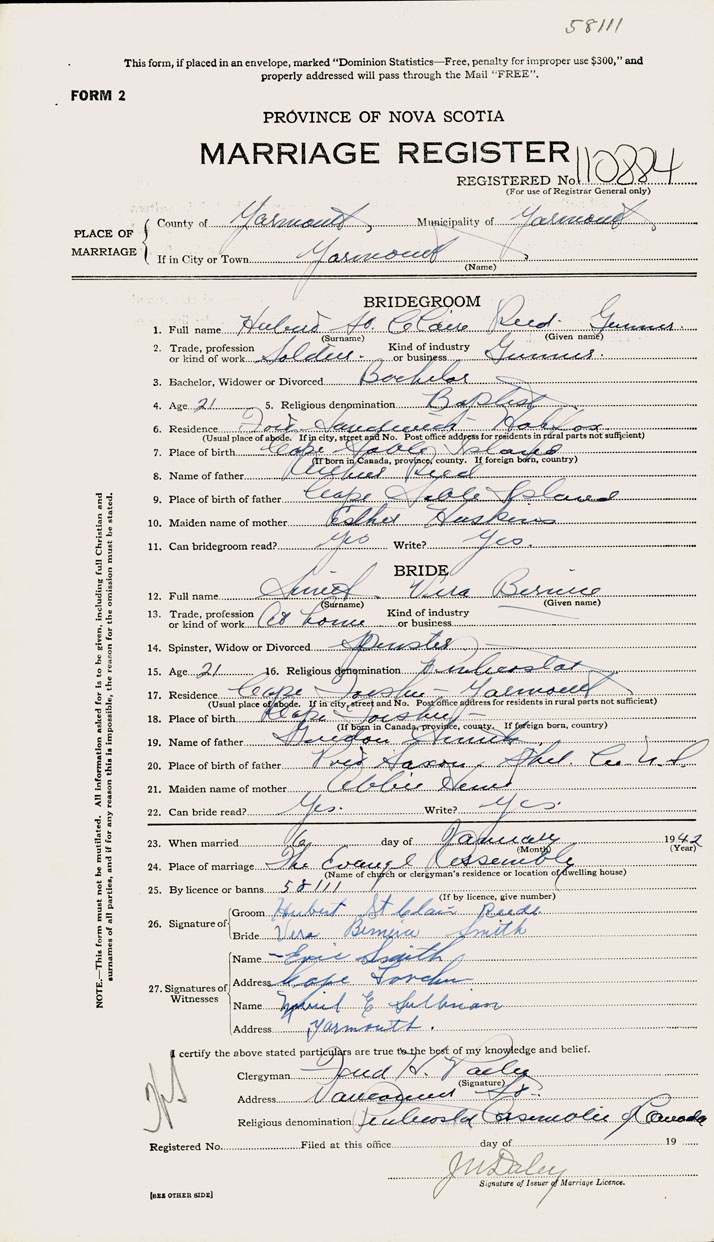 58111
This form, if placed in an envelope, marked "Dominion Statistics—Free, penalty for improper use $300," and
properly addressed will pass through the Mail "FREE".
FORM 2
PROVINCE OF NOVA SCOTIA
MARRIAGE REGISTER
REGISTERED No. 110884
(For use of Registrar General only)
PLACE OF MARRIAGE
County of Yarmouth, Municipality of Yarmouth,
If in City or Town Yarmouth,
(Name)
BRIDEGROOM
1. Full name Hubert St. Claire Reed. Gunner.
(Surname) (Given name)
2. Trade, profession or kind of work Soldier. Kind of industry or business Gunner.
3. Bachelor, Widower or Divorced Bachelor
4. Age 21 5. Religious denomination Baptist
6. Residence Fort Sandwich Halifax
(Usual place of abode. If in city, street and No. Post office address for residents in rural parts not sufficient)
7. Place of birth Cape Sable Island
(If born in Canada, province, county. If foreign born, country)
8. Name of father Reed
9. Place of birth of father Cape Sable Island
10. Maiden name of mother Esther Huskins
11. Can bridegroom read? Yes Write? Yes.
BRIDE
12. Full name Smith Vera Bernice
(Surname) (Given name)
13. Trade, profession or kind of work At home Kind of industry or business
14. Spinster, Widow or Divorced Spinster
15. Age 21 16. Religious denomination Pentecostal
17. Residence Cape Forchu - Yarmouth
(Usual place of abode. If in city, street and No. Post office address for residents in rural parts not sufficient)
18. Place of birth Cape Forchu
(If born in Canada, province, county. If foreign born, country)
19. Name of father Smith
20. Place of birth of father Port Saxon, Shel. Co. N.S.
21. Maiden name of mother Abbie
22. Can bride read? Yes. Write? Yes.
23. When married 6 day of January 1942
(Month) (Year)
24. Place of marriage The Evangel Assembly
(Name of church or clergyman's residence or location of dwelling house)
25. By licence or banns 58111
(If by licence, give number)
26. Signature of
Groom Hubert St Clair Reed
Bride Vera Bernice Smith
27. Signatures of Witnesses
Name Eric Smith
Address Cape Forchu
Name E Sullivan
Address Yarmouth.
I certify the above stated particulars are true to the best of my knowledge and belief.
Clergyman Fred H.
(Signature)
Address Vancouver St.
Religious denomination Pentecostal Assemblies of Canada
Registered No. Filed at this office day of 19
Signature of Issuer of Marriage Licence.
[SEE OTHER SIDE]
NOTE.—This form must not be mutilated. All information asked for is to be given, including full Christian and
surnames of all parties, and if for any reason this is impossible, the reason for the omission must be stated.